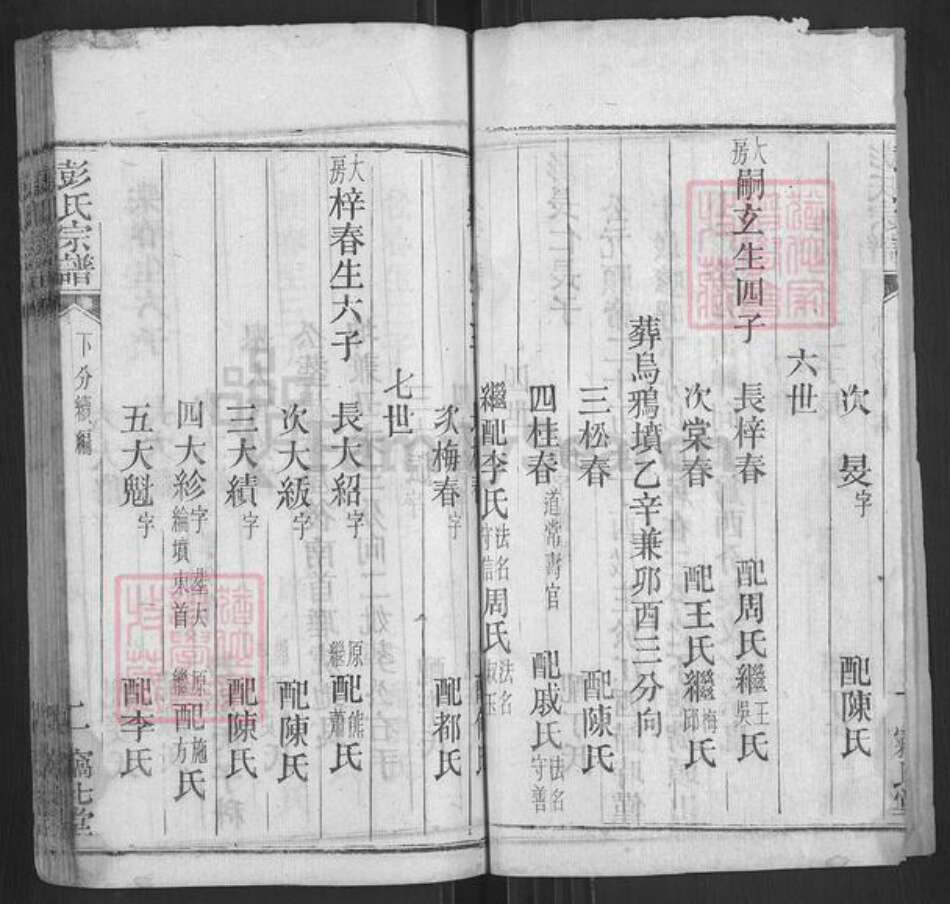 次 旻字 配陳氏
六世
大房嗣玄生四子 長梓春 配周氏繼王吳氏
次棠春 配王氏繼梅邱氏
葬烏鴉墳乙辛兼卯酉三分向
三松春 配陳氏
四桂春 道常壽官 配戚氏法名守善
繼配李氏法名守信周氏法名淑玉
次梅春字 配都氏
七世
大房梓春生六子 長大紹字 原繼配熊蕭氏
次大級字 配陳氏
三大績字 配陳氏
四大紾字 葬大綸墳東首 原繼配施方氏
五大魁字 配李氏
彭氏宗譜 下分續編 二